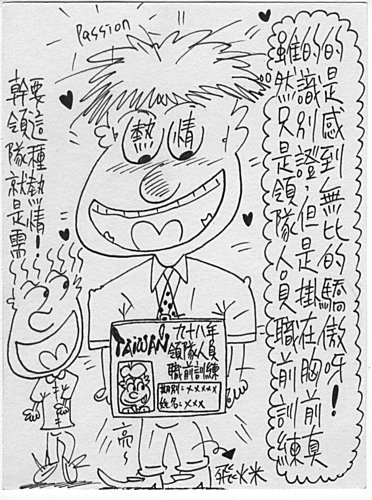 Passion
雖然只是領隊人員職前訓練
的識別證，但是掛在胸前真
的是感到無比的驕傲呀！
幹領隊就是需
要這種熱情！
熱情
TAIWAN
九十八年
領隊人員
職前訓練
期別：xxxxx
姓名：xxx
飛火米